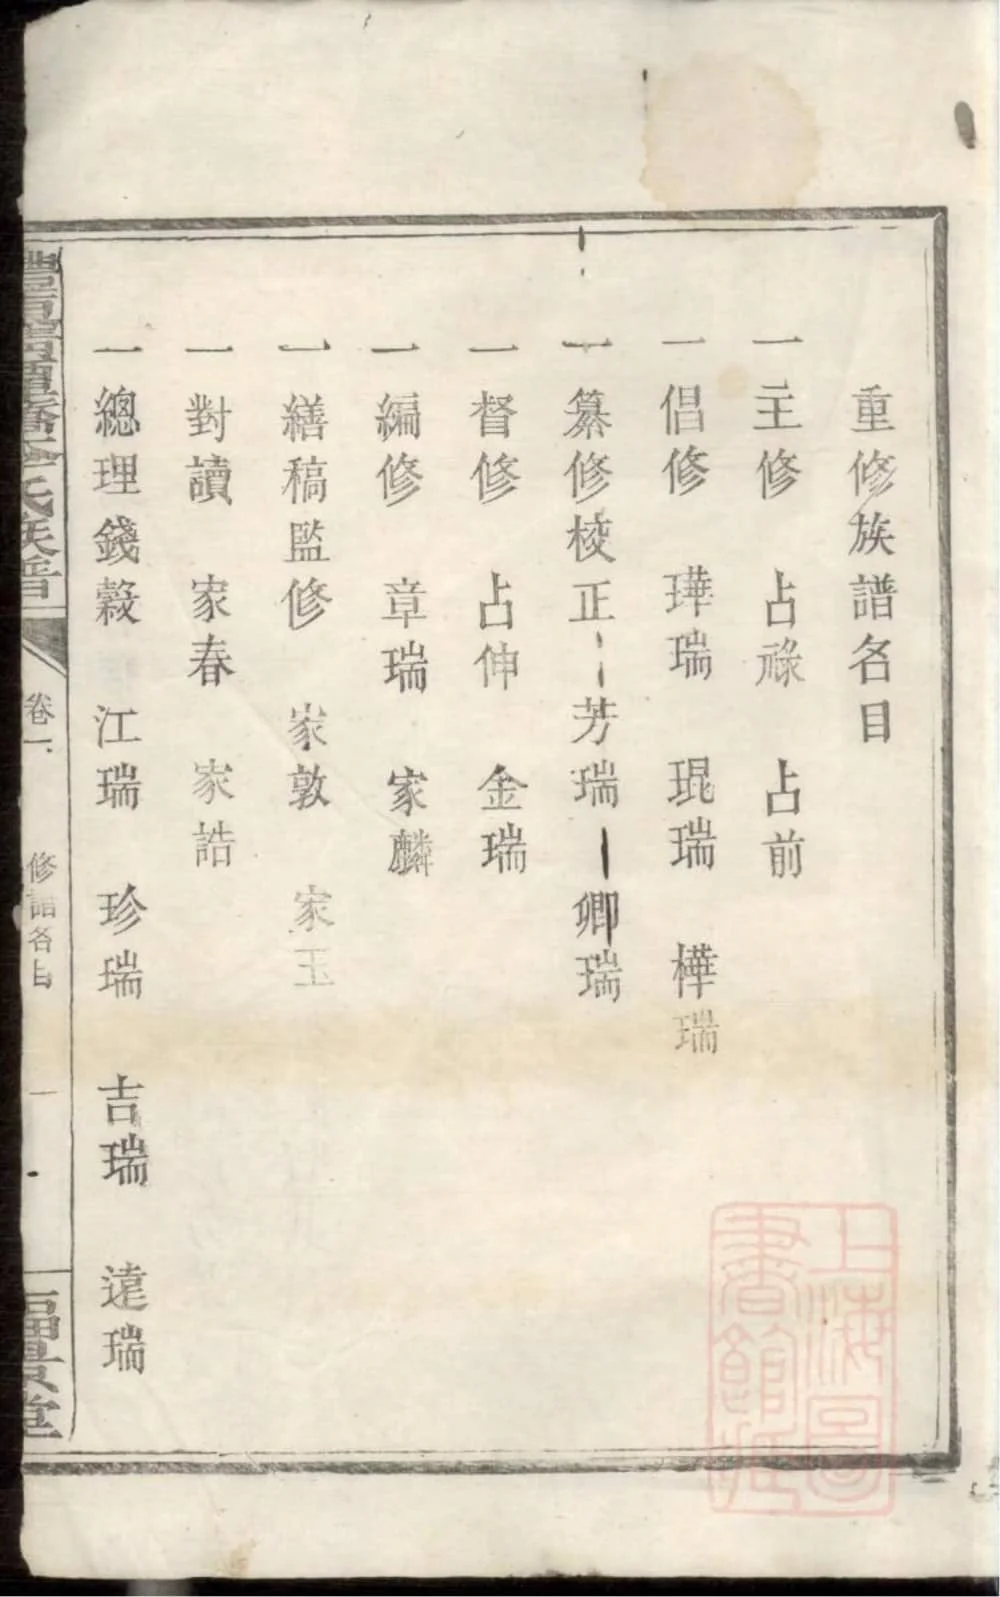 重修族譜名目
一主修 占祿 占前
一倡修 瑋瑞 琨瑞 樺瑞
一纂修校正 芳瑞 卿瑞
一督修 占伸 金瑞
一編修 章瑞 家麟
一繕稿監修 家敦 家玉
一對讀 家春 家誥
一總理錢穀 江瑞 珍瑞 吉瑞 遠瑞
氏族譜
卷一
修譜名目
一
堂
上海圖
書館藏